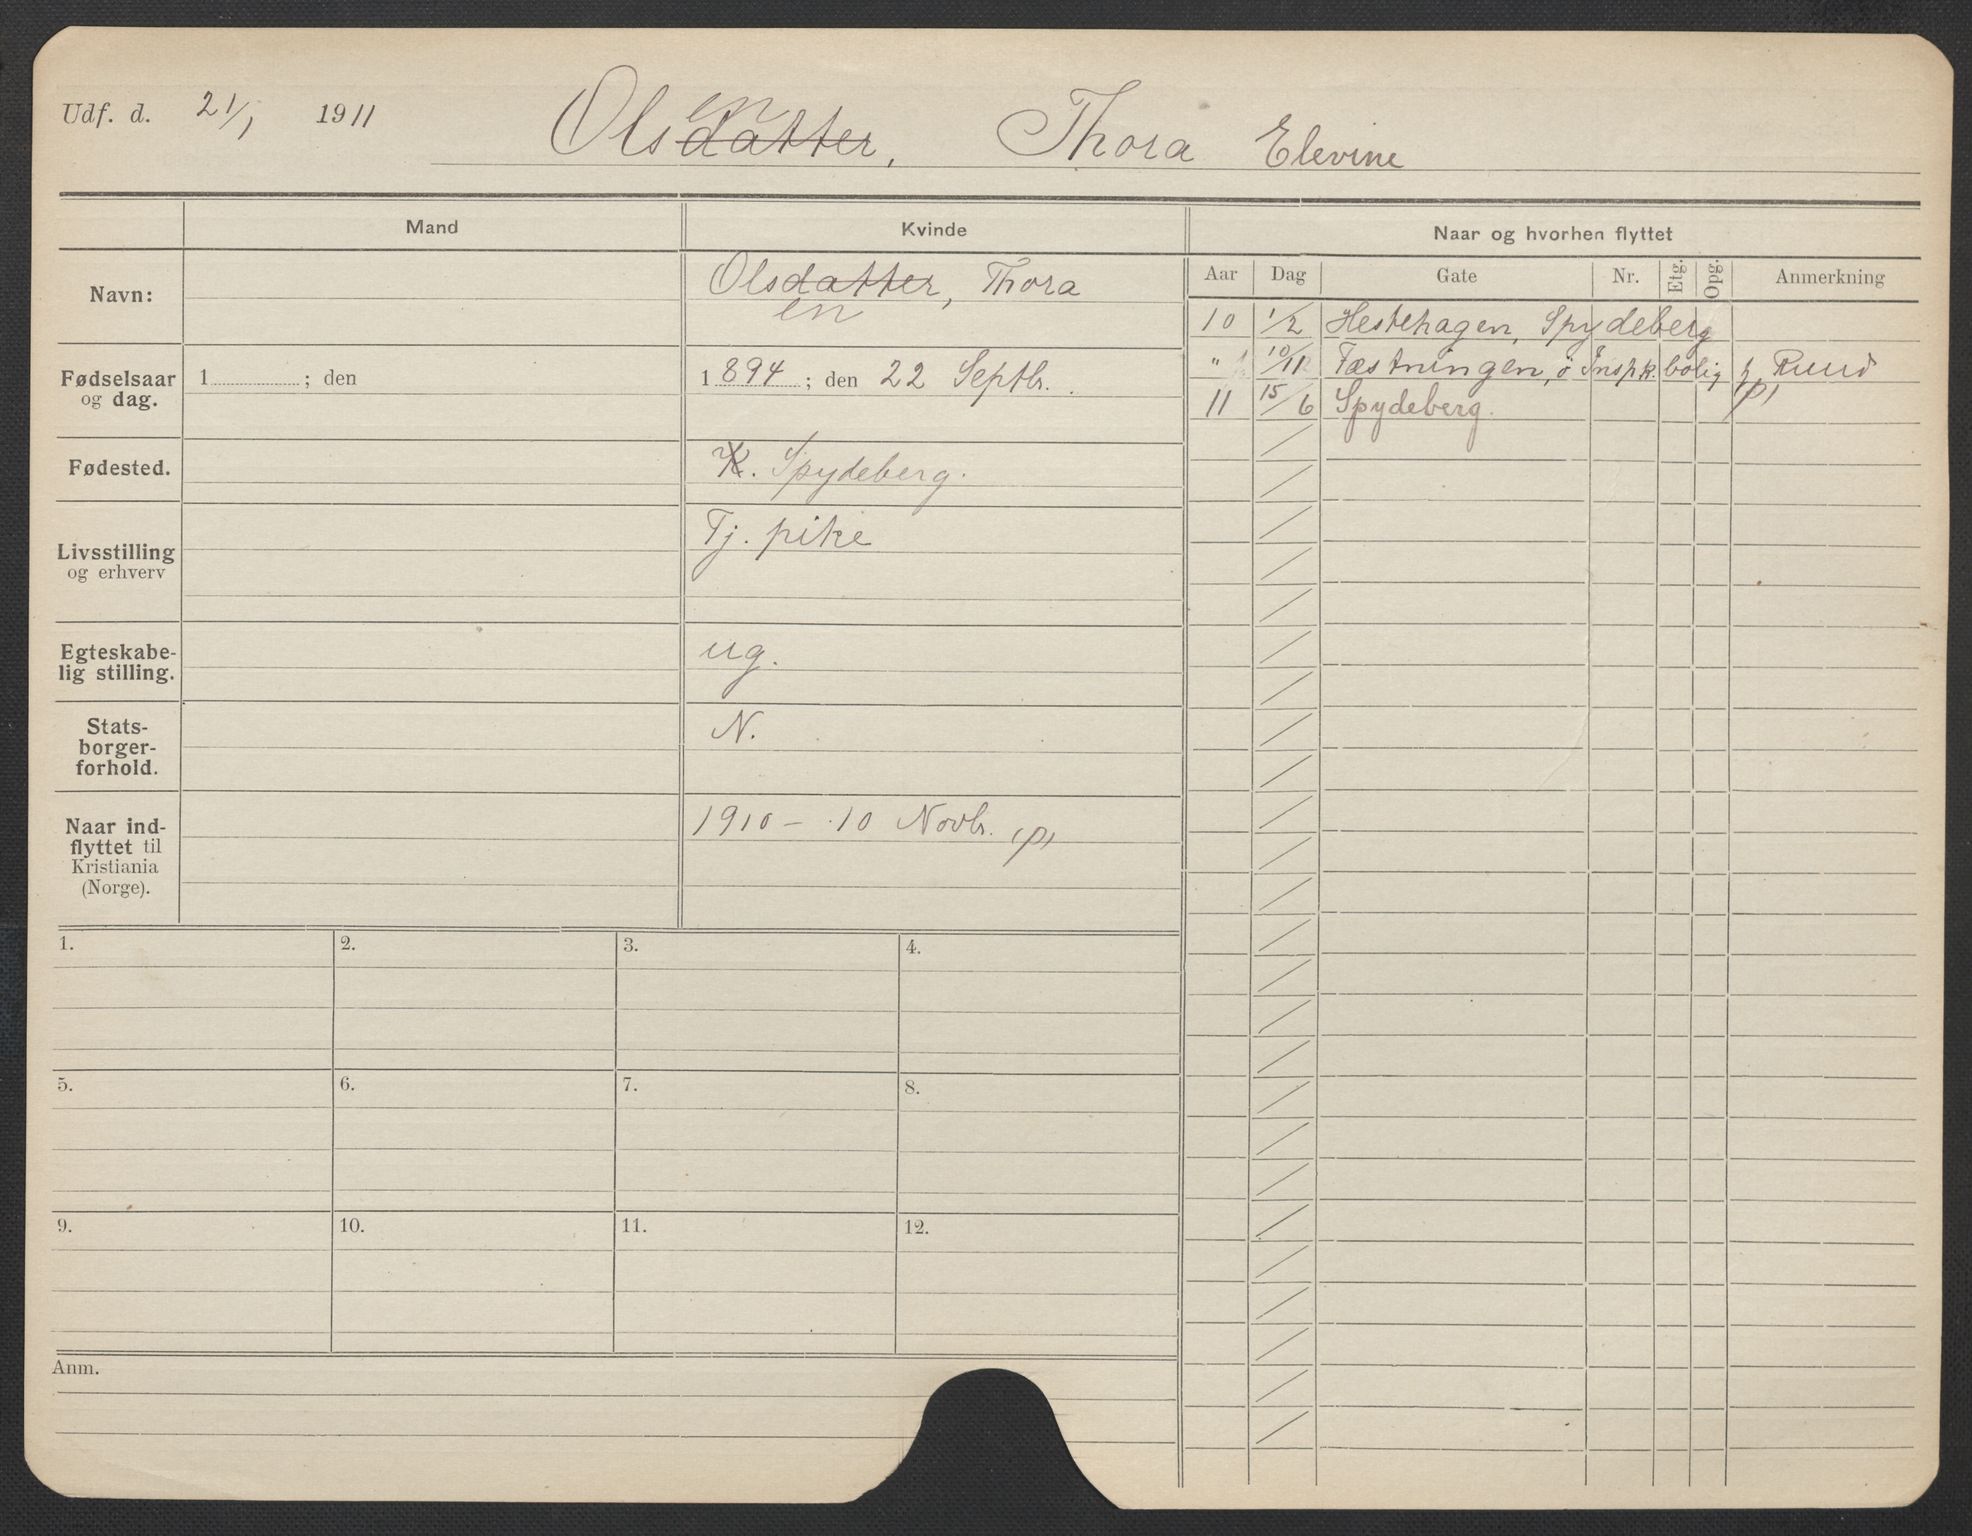 Udf. d. 21/1 1911
en
Olsdatter, Thora Elevine
Mand
Kvinde
Naar og hvorhen flyttet
Navn:
Olsdatter, Thora
en
Fødselsaar
og dag.
1 ; den
1894 ; den 22 Septbr.
Fødested.
K. Spydeberg.
Livsstilling
og erhverv
Tj. pike
Egteskabe-
lig stilling.
ug.
Stats-
borger-
forhold.
N.
Naar ind-
flyttet til
Kristiania
(Norge).
1910 – 10 Novbr. (p)
Aar Dag Gate Nr. Etg. Opg. Anmerkning
10 1/2 Hestehagen, Spydeberg
" 10/11 Fæstningen, ø Inspk. bolig Ruud
(p)
11 15/6 Spydeberg.
1. 2. 3. 4.
5. 6. 7. 8.
9. 10. 11. 12.
Anm.